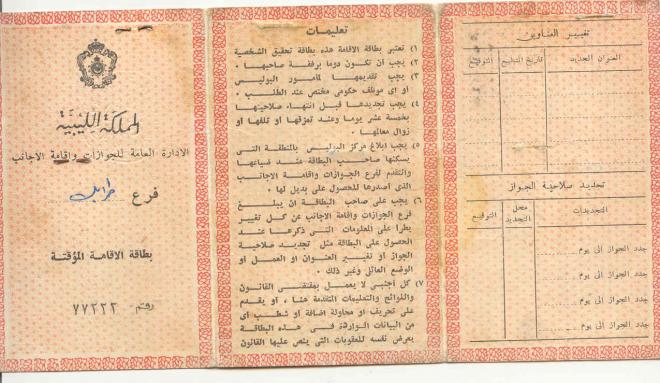 المملكة الليبية
الادارة العامة للجوازات واقامة الاجانب
فرع طرابلس
بطاقة الاقامة المؤقتة
رقم ٧٧٢٢٢
تعليمات
١) تعتبر بطاقة الاقامة هذه بطاقة تحقيق الشخصية
٢) يجب ان تكون دوما برفقة صاحبها .
٣) يجب تقديمها لمأمور البوليس
او اى موظف حكومى مختص عند الطلب .
٤) يجب تجديدها قبل انتهاء صلاحيتها
بخمسة عشر يوما وعند تمزقها او تلفها او
زوال معالمها .
٥) يجب ابلاغ مركز البوليس بالمنطقة التى
يسكنها صاحب البطاقة عند ضياعها
والتقدم لفرع الجوازات واقامة الاجانب
الذى اصدرها للحصول على بديل لها .
٦) يجب على صاحب البطاقة ان يبلغ
فرع الجوازات واقامة الاجانب عن كل تغيير
يطرأ على المعلومات التى ذكرها عند
الحصول على البطاقة مثل تجديد صلاحية
الجواز او تغيير العنوان او العمل او
الوضع العائلى وغير ذلك .
٧) كل أجنبى لا يعمل بمقتضى القانون
واللوائح والتعليمات المتقدمة هنا ، او يقدم
على تحريف او محاولة اضافة او شطب أى
من البيانات الواردة فى هذه البطاقة
يعرض نفسه للعقوبات التى ينص عليها القانون
تغيير العناوين
العنوان الجديد تاريخ التبليغ التوقيع
تجديد صلاحية الجواز
التجديدات محل التجديد التوقيع
جدد الجواز الى يوم
جدد الجواز الى يوم
جدد الجواز الى يوم
جدد الجواز الى يوم